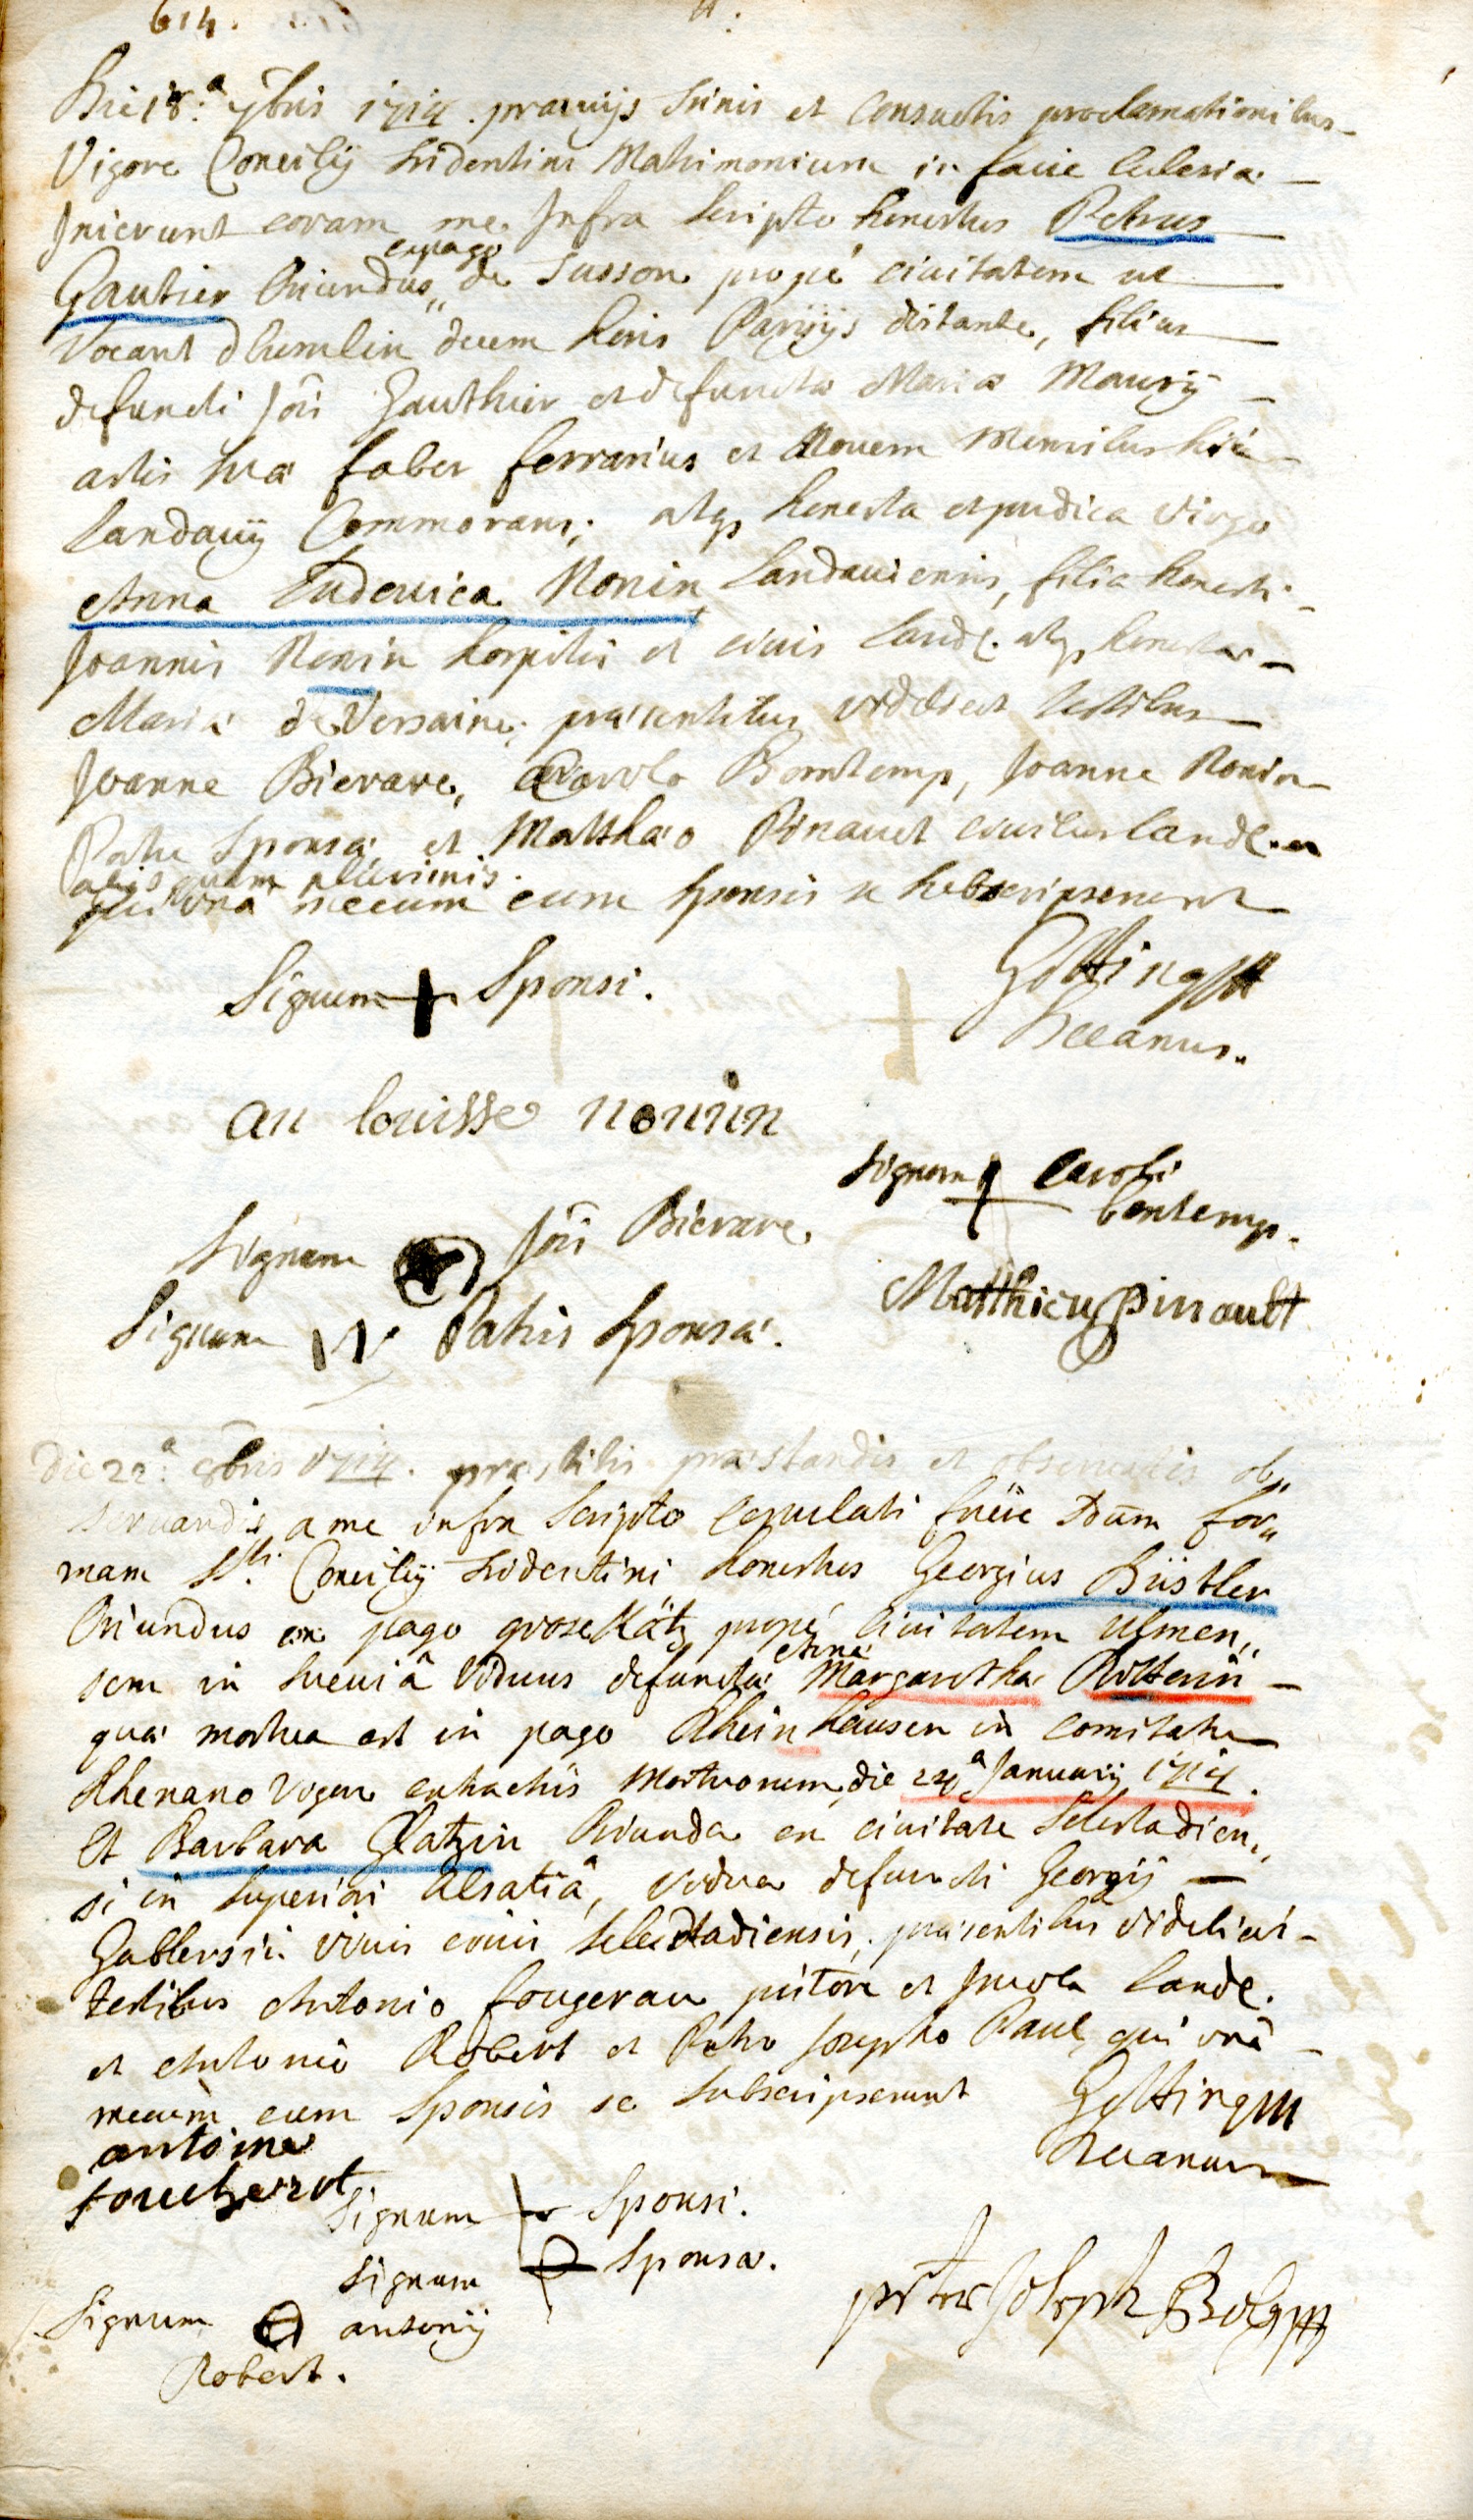 614.
Die 18.a 7bris 1714. praeuijs trinis et Consuetis proclamationibus
Vigore Concilij tridentini Matrimonium in facie Eclesiae
Inierunt coram me Infra Scripto honestus Petrus
Gautier Oriundus ex pago de Susson propè ciuitatem ut
Vocant decem horis Parisijs distante, filius
defuncti Jois Gauthier et defunctae Mariae Maurij
artis suae faber ferrarius et Nouem Mensibus hic
Landauij Commorans, atq honesta et pudica Virgo
Anna Ludouica Nonin Landauiensis, filia honesti
Joannis Nonin hospitis et ciuis Land. atq honestae
Mariae de Versaine, praesentibus videlicet testibus
Joanne Bierare, Carolo Bomtemp, Joanne Nonin
Patre Sponsae et Matthaeo Pinauet ciuibus Land. et
alijs quam plurimis.
qui unà mecum cum Sponsis se subscripserunt
Signum + Sponsi.
Götting
Decanus.
an louisse nonnin
Signum Caroli
bentemp.
Signum Jois Bierare
Matthieu pinault
Signum Patris Sponsae.
Die 22.a 8bris 1714. praestitis praestandis et obseruatis ob„
seruandis a me infra Scripto Copulati fuere for„
mam Sti. Concilij tridentini honestus Georgius Büstler
Oriundus ex pago grosekötz propè Ciuitatem Ulmen„
sem in Sueuiâ Viduus defunctae Annae Margaretha
quae mortua est in pago Rheinhausen in Comitatu
Rhenano Vigore extractûs Mortuorum, die 24a Januarij 1714.
Et Barbara Glatzin Oriunda ex ciuitate Selestadien„
si in Superiori Alsatiâ, vidua defuncti Georgij
ciuis Selestadiensis, praesentibus videlicet
testibus Antonio fougerau pistore et Incola Land.
et Antonio Robert et Petro Josepho Paul, qui unâ
mecum cum Sponsis se Subscripserunt
Götting
Decanus
antoine
foucherot
Signum Sponsi.
Signum Sponsae.
Signum antonij
Robert.